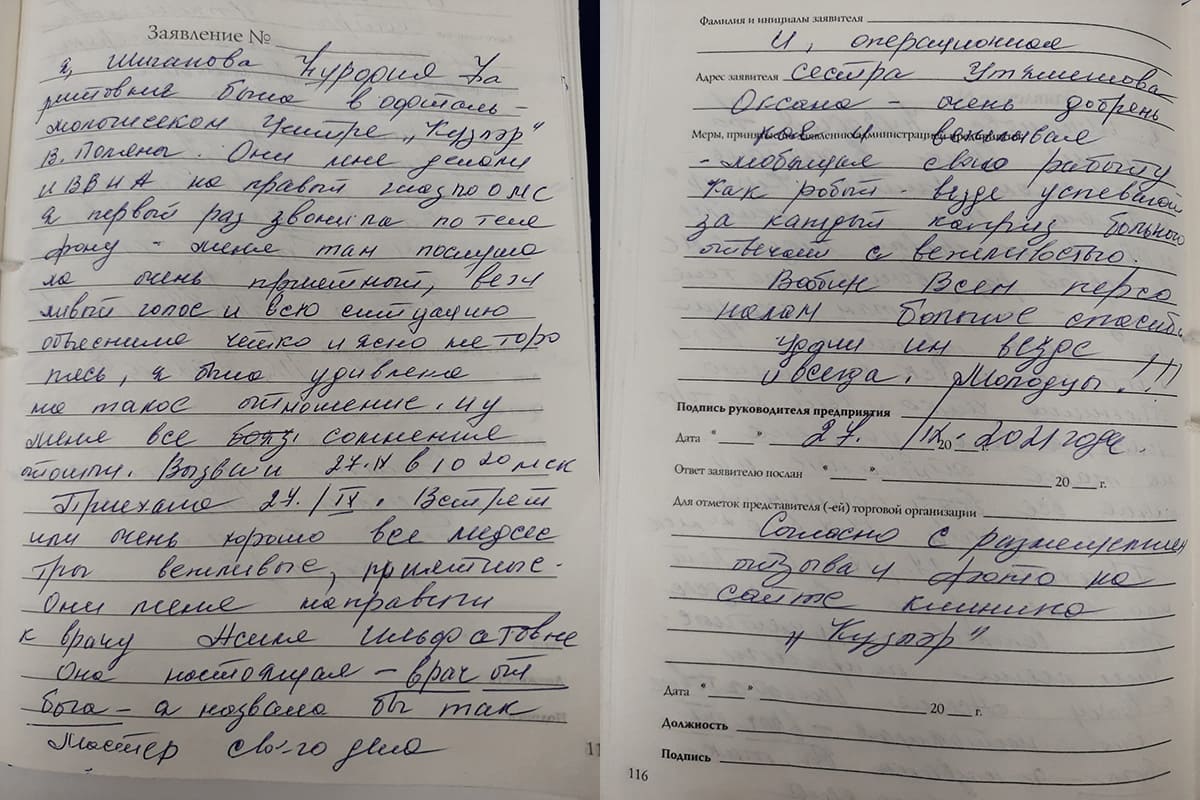 Заявление №
я, Шиганова Нурдия За
ритовна была в офталь-
мологическом Центре „Кузляр"
В. Поляны. Они мне делали
ИВВИА на правый глаз по ОМС
Я первый раз звонила по теле
фону - меня там послуша
ла очень приятный, вежли
ливый голос и всю ситуацию
объяснила четко и ясно не торо
пясь, я была удивлена
на такое отношение. И у
меня все сомнение
отошли. Вызвали 27.IX в 10 20 мск
Приехала 27./IX. Встрет
или очень хорошо все медсес
тры вежливые, приятные.
Они меня направили
к врачу Асиля Ильфатовне
Она настоящая - врач от
бога - я назвала бы так
Мастер своего дела
Фамилия и инициалы заявителя
И, операционная
Адрес заявителя сестра Утямишова
Оксана - очень добрень
Меры, принятые по заявлению администрацией предприятия
кая и вежливая
- любящая свою работу
Как робот - везде успевает
за каждый каприз больного
отвечает с вежливостью.
Вобщем Всем персо
налам большое спасибо
Удачи им везде
и всегда. Молодцы!!!
Подпись руководителя предприятия
Дата “ ” 27. /IX 20 - 2021 года.
Ответ заявителю послан “ ” 20 г.
Для отметок представителя (-ей) торговой организации
Согласно с размещением
отзыва и фото на
сайте клиника
„Кузляр"
Дата “ ” 20 г.
Должность
Подпись
116
11